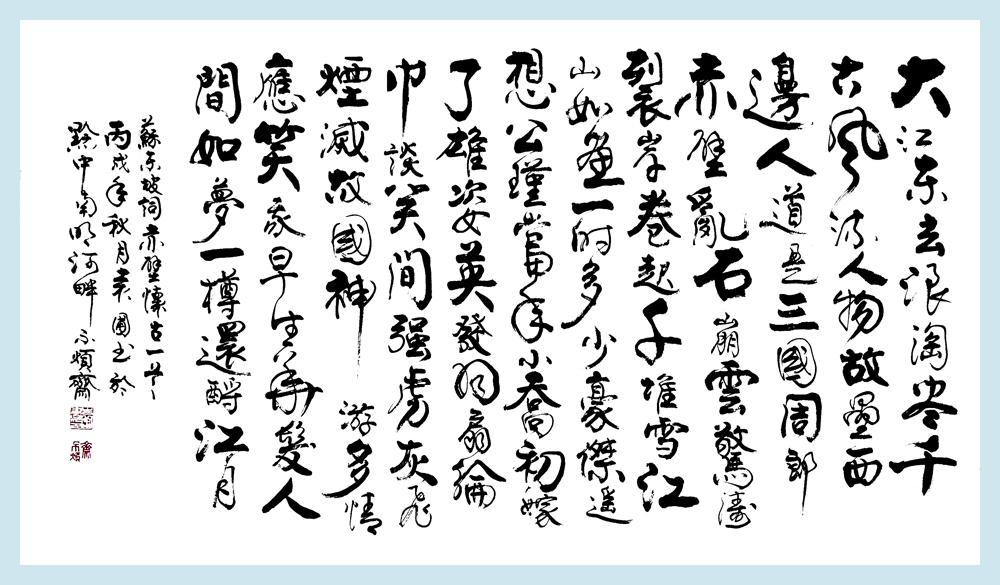 大江东去浪淘尽千
古风流人物故壘西
邊人道是三國周郎
赤壁亂石崩雲驚濤
裂岸卷起千堆雪江
山如畫一时多少豪傑遥
想公瑾當年小喬初嫁
了雄姿英發羽扇綸
巾談笑间强虜灰飛
煙滅故國神游多情
應笑我早生華髮人
間如夢一樽還酹江月
蘇东坡詞赤壁懷古一首
丙戌年秋月书於
黔中南明河畔不煩齋